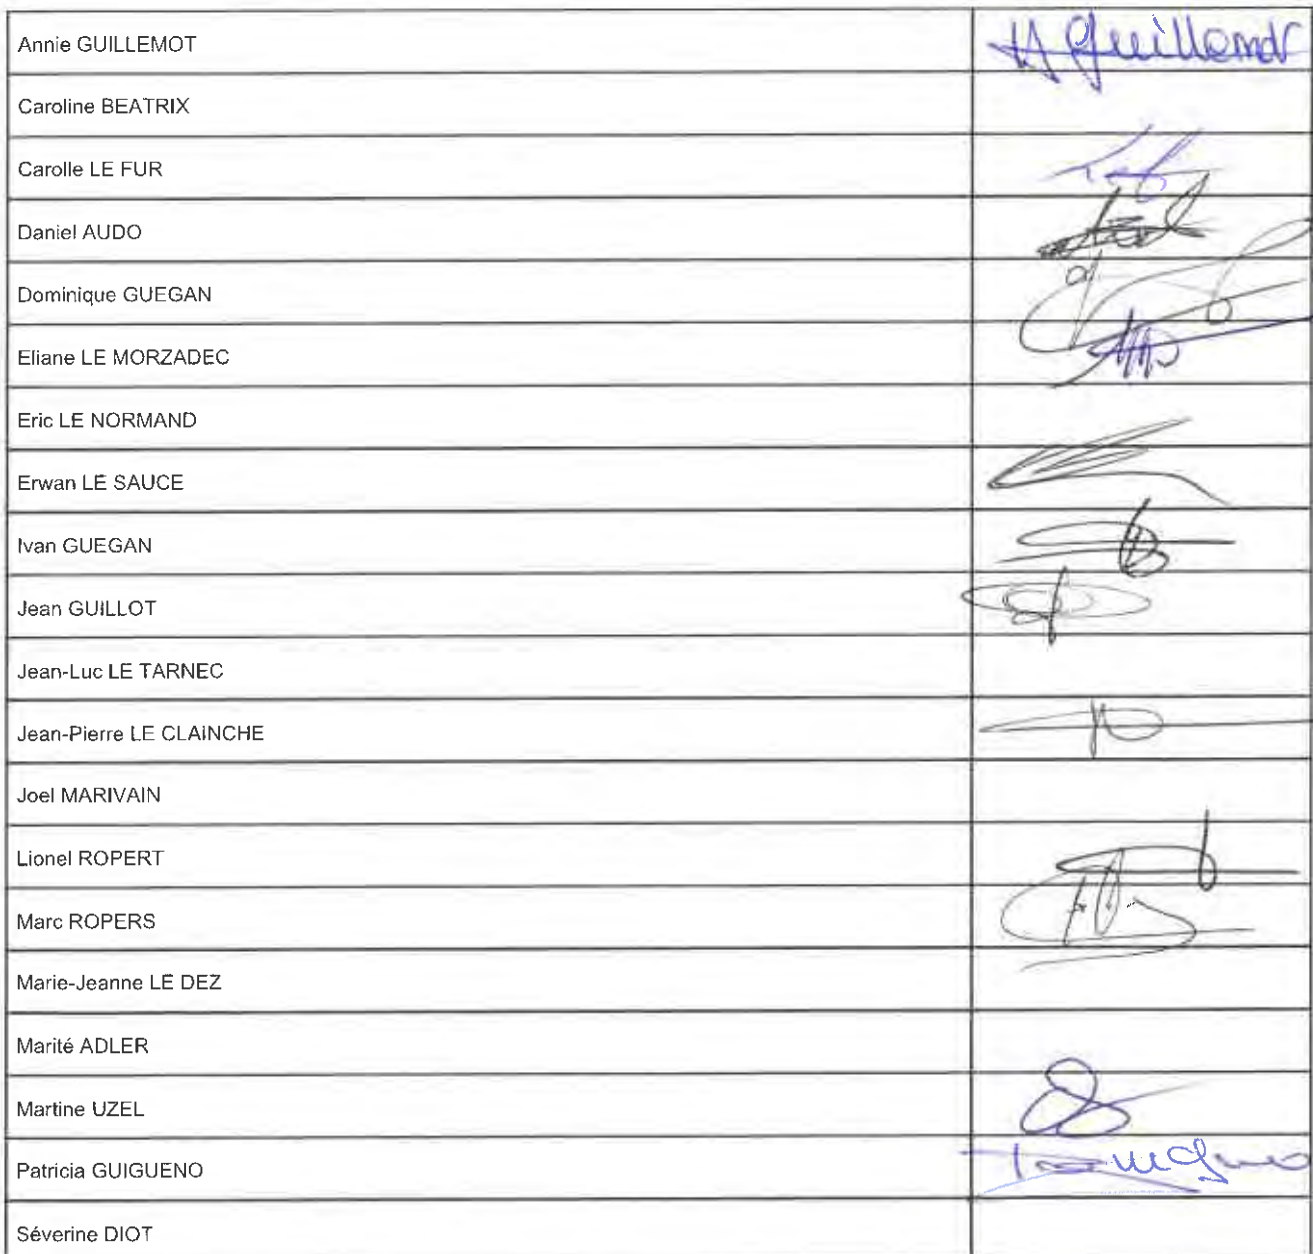 Annie GUILLEMOT
A Guillemot
Caroline BEATRIX
Carolle LE FUR
Daniel AUDO
Dominique GUEGAN
Eliane LE MORZADEC
Eric LE NORMAND
Erwan LE SAUCE
Ivan GUEGAN
Jean GUILLOT
Jean-Luc LE TARNEC
Jean-Pierre LE CLAINCHE
Joel MARIVAIN
Lionel ROPERT
Marc ROPERS
Marie-Jeanne LE DEZ
Marité ADLER
Martine UZEL
Patricia GUIGUENO
Séverine DIOT